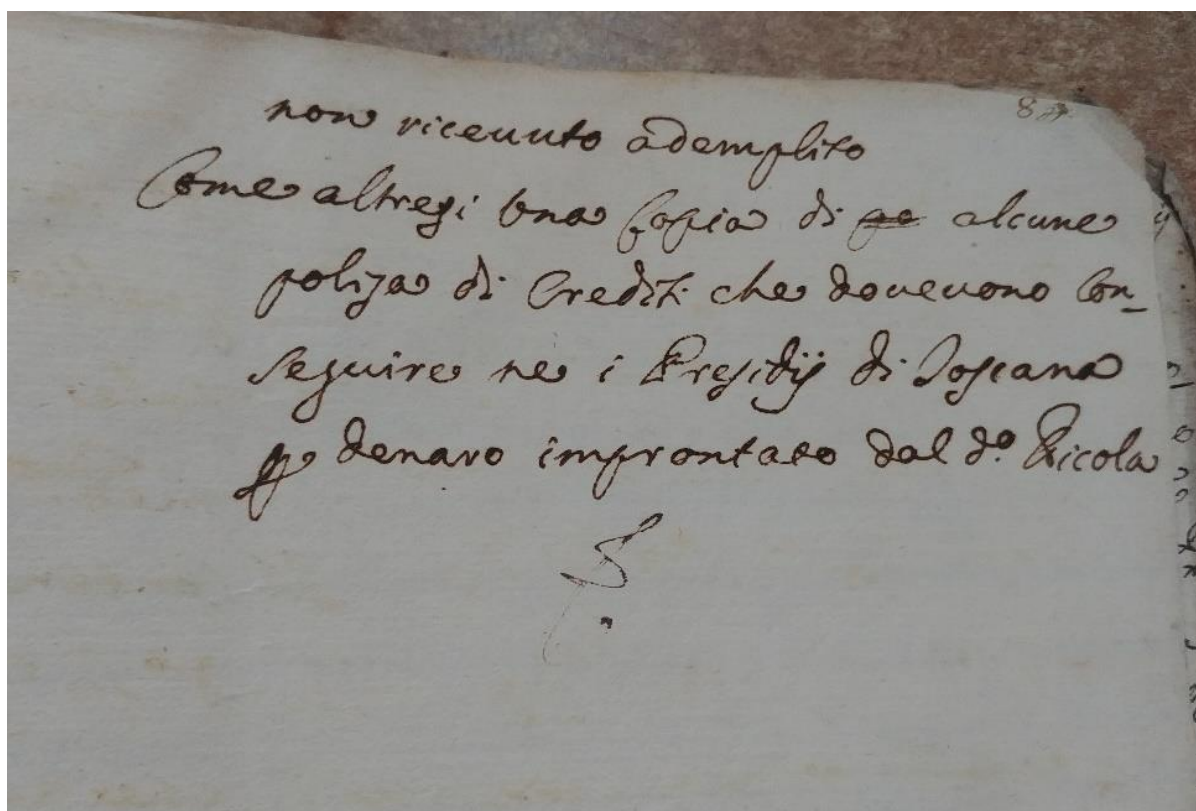 non riceuuto ademplito
Come altresi una Copia di alcune
poliza di Crediti che doveuono Con-
seguire ne i Presidij di Toscana
p denaro improntato dal d.º Nicola